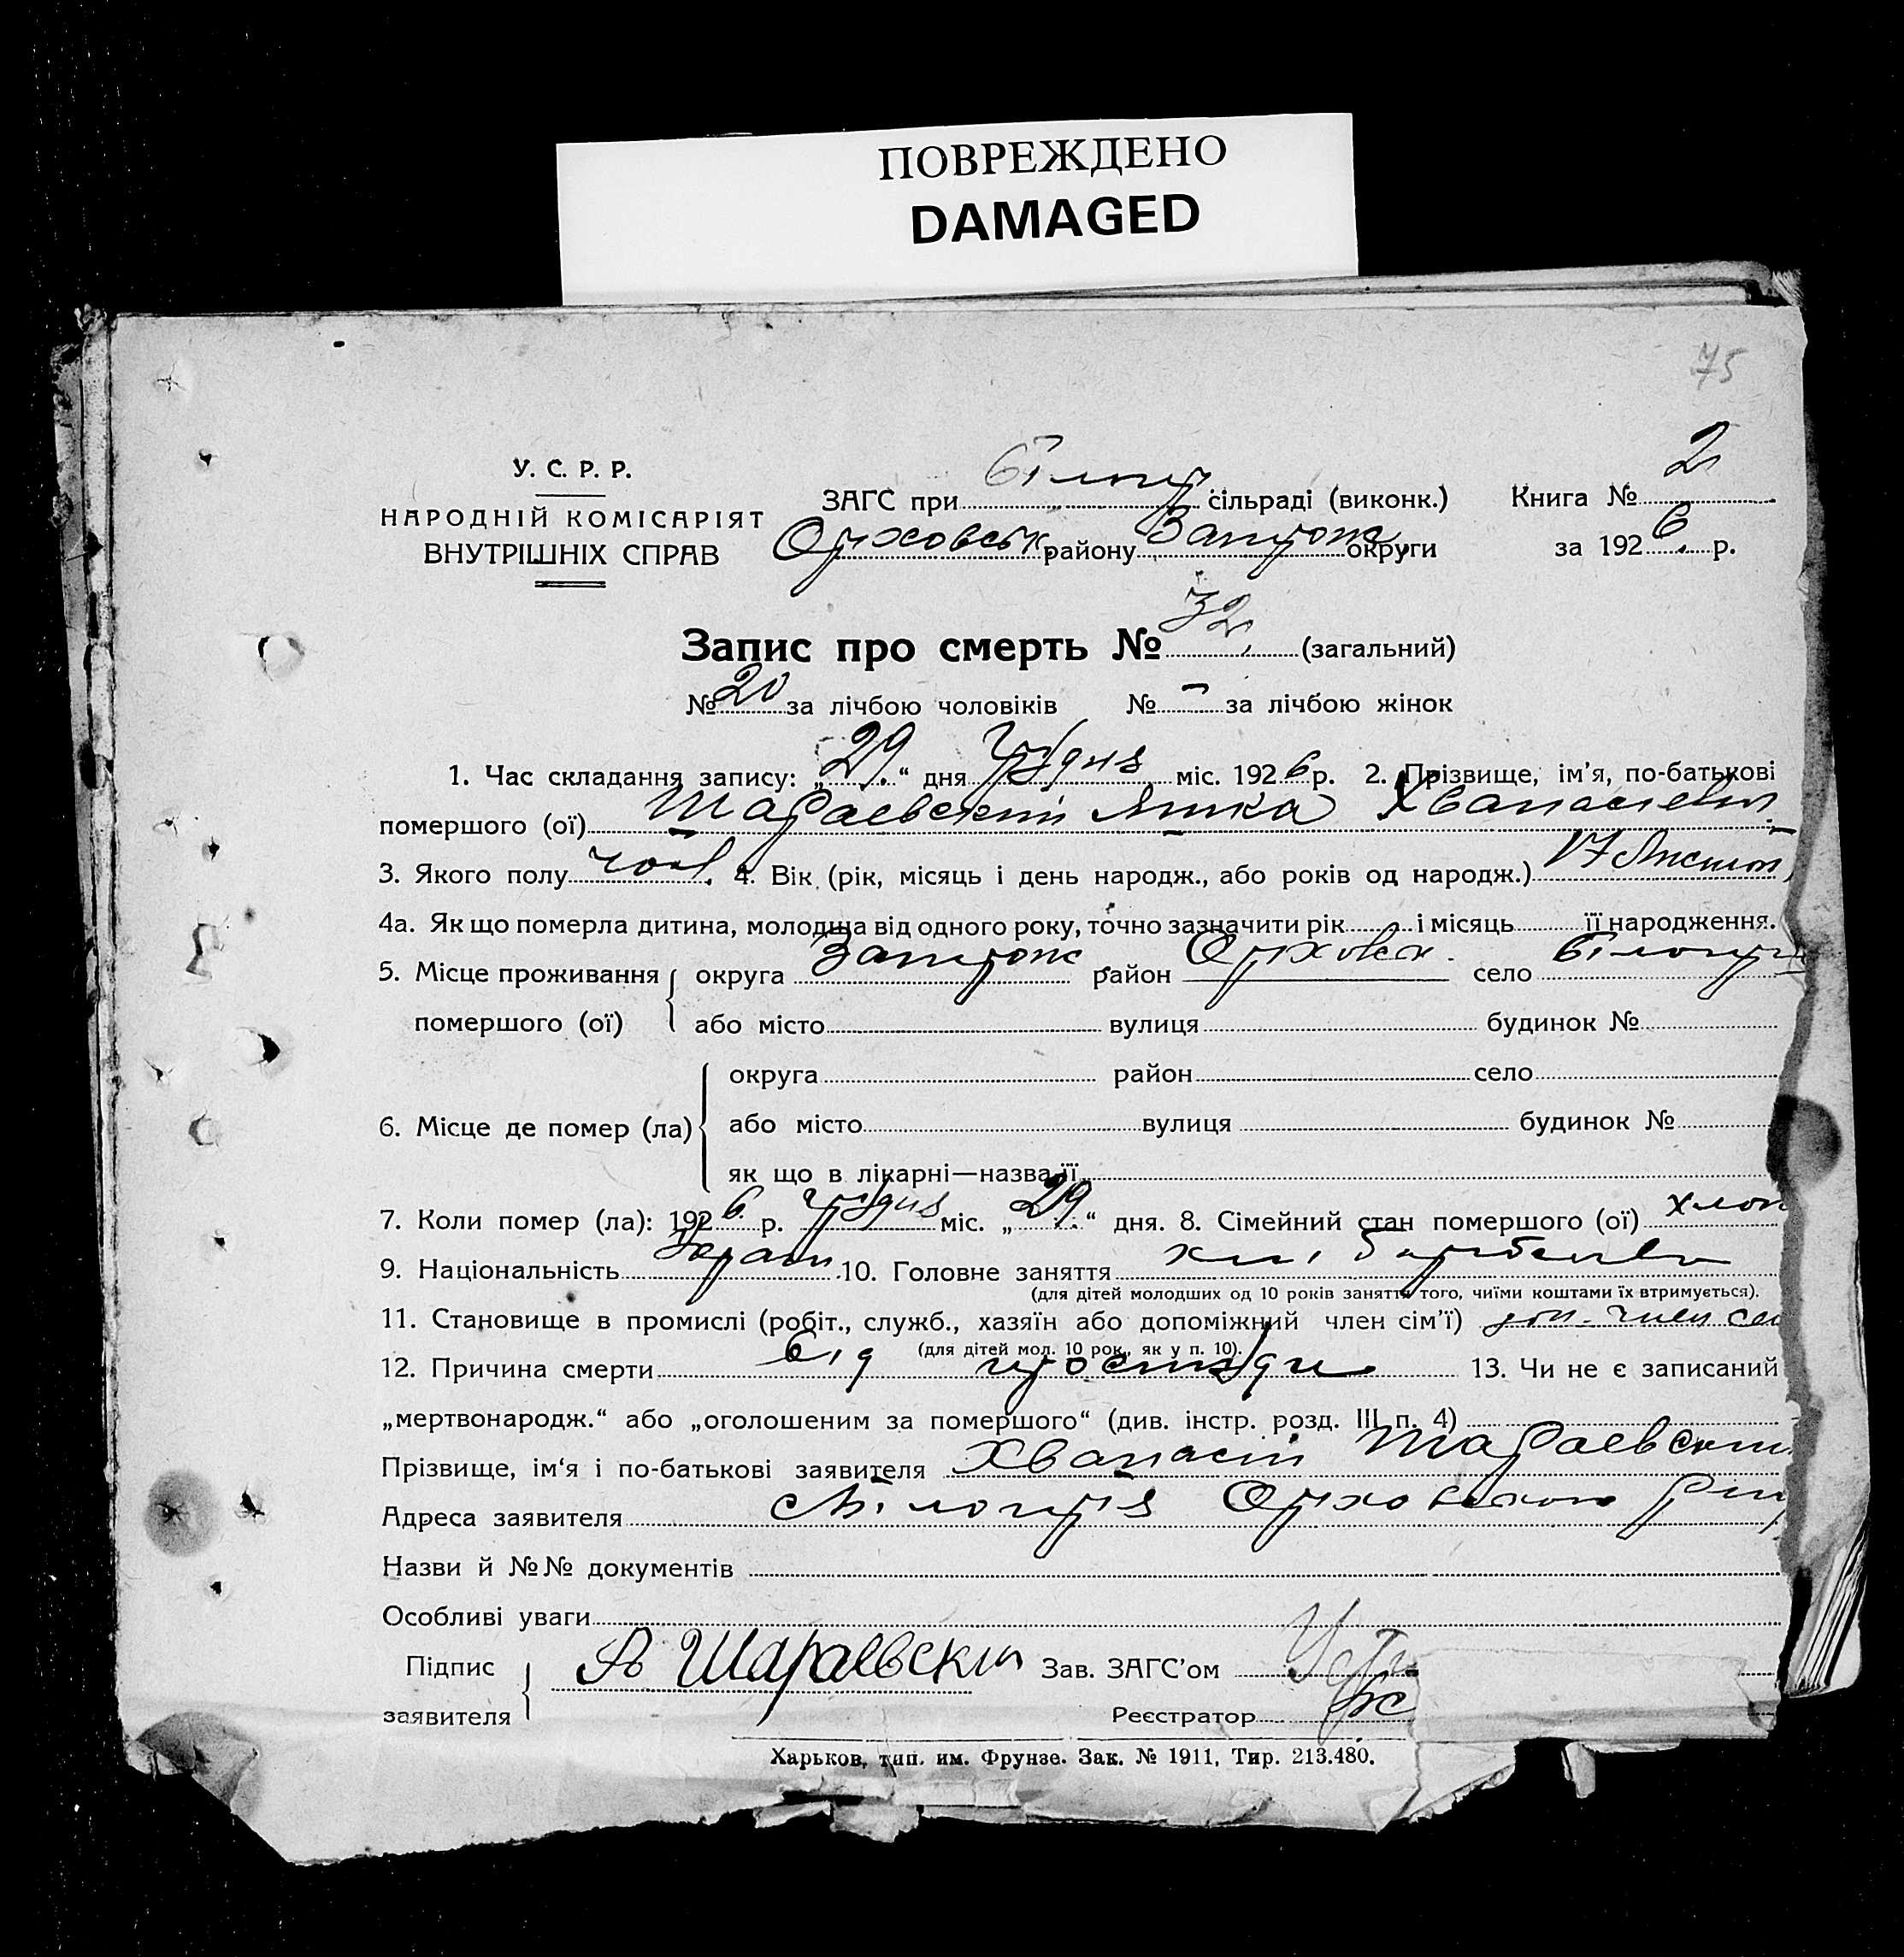 ПОВРЕЖДЕНО
DAMAGED
75
У. С. Р. Р.
НАРОДНІЙ КОМІСАРІЯТ
ВНУТРІШНІХ СПРАВ
ЗАГС при Білогір сільраді (виконк.) Книга № 2
Оріховськ району Запоріж. округи за 1926 р.
Запис про смерть № 32 (загальний)
№ 20 за лічбою чоловіків № - за лічбою жінок
1. Час складання запису: „29“ дня Грудня міс. 1926 р. 2. Прізвище, ім’я, по-батькові
помершого (ої) Шараевский Хванасієвич
3. Якого полу чол. 4. Вік (рік, місяць і день народж., або років од народж.) 17 Листоп
4а. Як що померла дитина, молодша від одного року, точно зазначити рік і місяць її народження.
5. Місце проживання помершого (ої) округа Запоріж район Оріховськ. село Білогір
або місто вулиця будинок №
6. Місце де помер (ла) округа район село
або місто вулиця будинок №
як що в лікарні—назва її
7. Коли помер (ла): 1926 р. Грудня міс. „29“ дня. 8. Сімейний стан помершого (ої) хлоп
9. Національність Украін 10. Головне заняття хліборобство
(для дітей молодших од 10 років заняття того, чиїми коштами їх втримується).
11. Становище в промислі (робіт., служб., хазяїн або допоміжний член сім’ї) доп. член сем
(для дітей мол. 10 рок., як у п. 10).
12. Причина смерти від простуди 13. Чи не є записаний
„мертвонародж.“ або „оголошеним за помершого“ (див. інстр. розд. III п. 4)
Прізвище, ім‘я і по-батькові заявителя Хванасій Шараевский
Адреса заявителя с. Білогіря Оріховського рай
Назви й №№ документів
Особливі уваги
Підпис заявителя А Шараевский Зав. ЗАГС’ом
Реєстратор
Харьков, тип. им. Фрунзе. Зак. № 1911, Тир. 213.480.